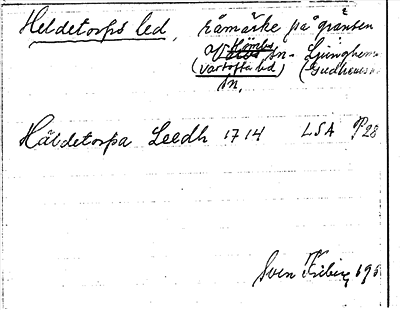 Heldetorps led, råmärke på gränsen
Kömbs sn - Ljunghems
(Vartofta hd) (Gudhems h
sn.
Häldetorpa Leedh 1714 LSA P28
Sven 196